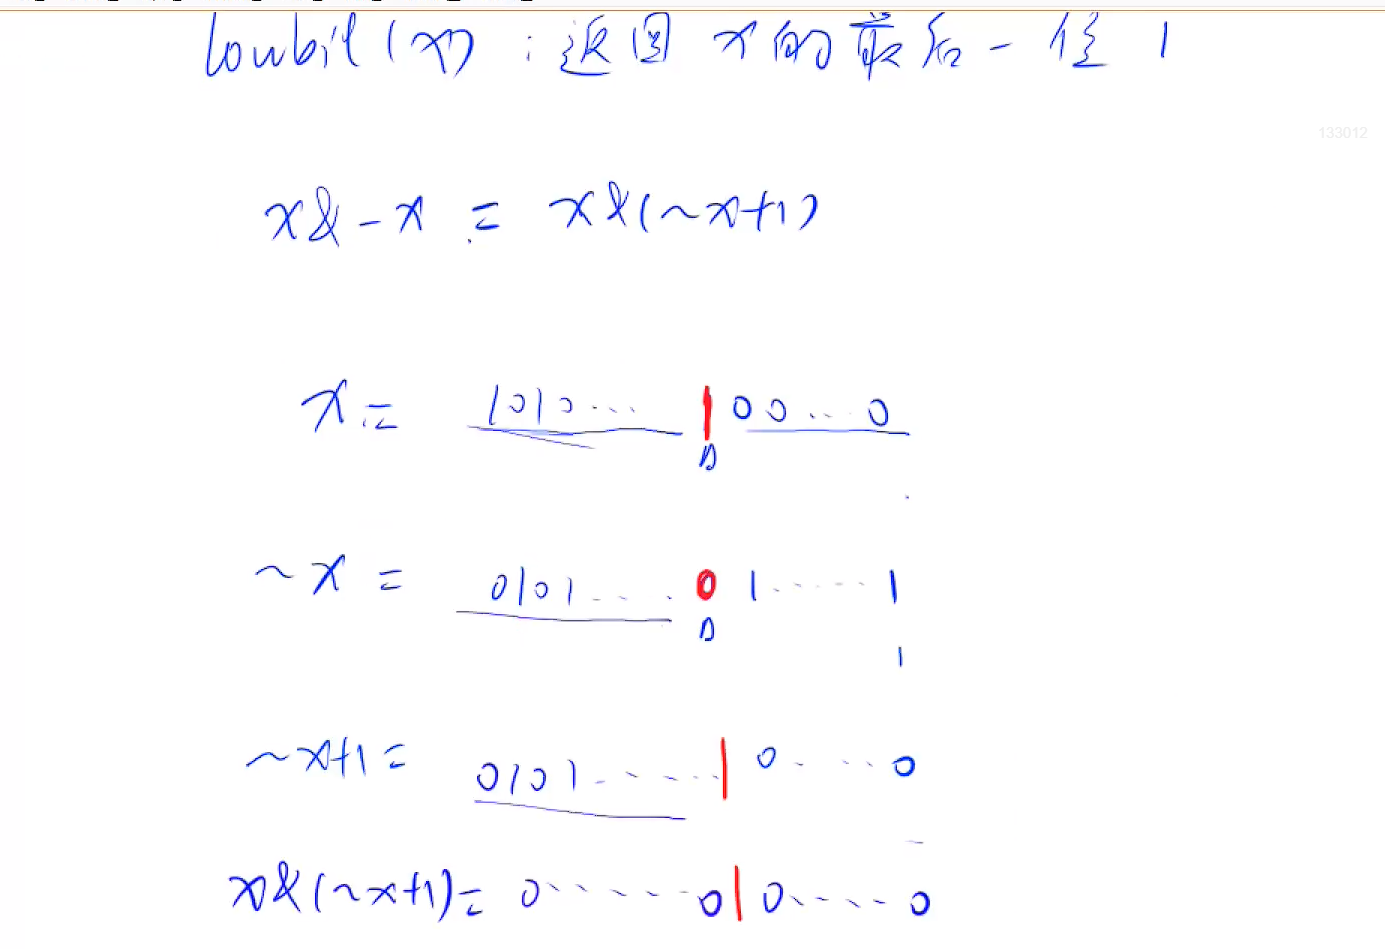 lowbit(x) : 返回 x 的最后一位 1
133012
x & -x = x & (~x+1)
x = 1010... 1 00...0
~x = 0101.... 0 1.....1
1
~x+1 = 0101..... 1 0....0
x & (~x+1) = 0.....0 1 0.....0